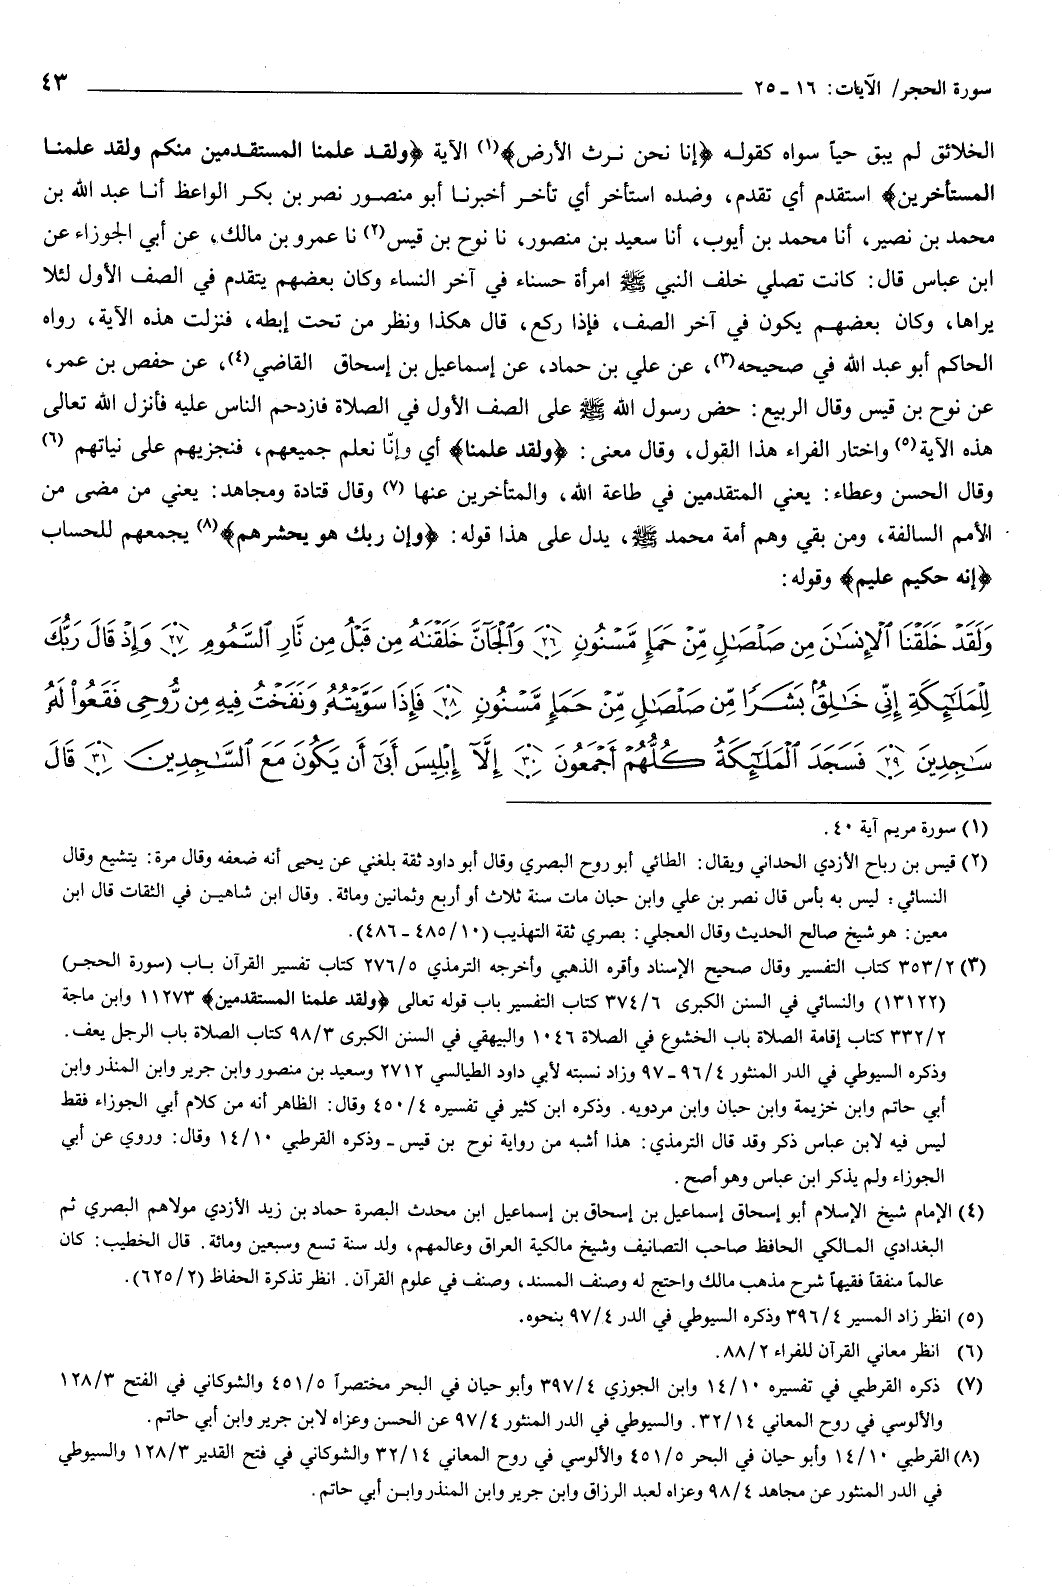 سورة الحجر/ الآيات: ١٦ ـ ٢٥ ٤٣
الخلائق لم يبق حياً سواه كقوله ﴿إنا نحن نرث الأرض﴾(١) الآية ﴿ولقد علمنا المستقدمين منكم ولقد علمنا
المستأخرين﴾ استقدم أي تقدم، وضده استأخر أي تأخر أخبرنا أبو منصور نصر بن بكر الواعظ أنا عبد الله بن
محمد بن نصير، أنا محمد بن أيوب، أنا سعيد بن منصور، نا نوح بن قيس(٢) نا عمرو بن مالك، عن أبي الجوزاء عن
ابن عباس قال: كانت تصلي خلف النبي ﷺ امرأة حسناء في آخر النساء وكان بعضهم يتقدم في الصف الأول لئلا
يراها، وكان بعضهم يكون في آخر الصف، فإذا ركع، قال هكذا ونظر من تحت إبطه، فنزلت هذه الآية، رواه
الحاكم أبو عبد الله في صحيحه(٣)، عن علي بن حماد، عن إسماعيل بن إسحاق القاضي(٤)، عن حفص بن عمر،
عن نوح بن قيس وقال الربيع: حض رسول الله ﷺ على الصف الأول في الصلاة فازدحم الناس عليه فأنزل الله تعالى
هذه الآية(٥) واختار الفراء هذا القول، وقال معنى: ﴿ولقد علمنا﴾ أي وإنّا نعلم جميعهم، فنجزيهم على نياتهم (٦)
وقال الحسن وعطاء: يعني المتقدمين في طاعة الله، والمتأخرين عنها (٧) وقال قتادة ومجاهد: يعني من مضى من
الأمم السالفة، ومن بقي وهم أمة محمد ﷺ، يدل على هذا قوله: ﴿وإن ربك هو يحشرهم﴾(٨) يجمعهم للحساب
﴿إنه حكيم عليم﴾ وقوله:
وَلَقَدْ خَلَقْنَا ٱلْإِنسَـٰنَ مِن صَلْصَـٰلٍ مِّنْ حَمَإٍ مَّسْنُونٍ ٢٦ وَٱلْجَآنَّ خَلَقْنَـٰهُ مِن قَبْلُ مِن نَّارِ ٱلسَّمُومِ ٢٧ وَإِذْ قَالَ رَبُّكَ
لِلْمَلَـٰٓئِكَةِ إِنِّى خَـٰلِقٌۢ بَشَرًا مِّن صَلْصَـٰلٍ مِّنْ حَمَإٍ مَّسْنُونٍ ٢٨ فَإِذَا سَوَّيْتُهُۥ وَنَفَخْتُ فِيهِ مِن رُّوحِى فَقَعُوا۟ لَهُۥ
سَـٰجِدِينَ ٢٩ فَسَجَدَ ٱلْمَلَـٰٓئِكَةُ كُلُّهُمْ أَجْمَعُونَ ٣٠ إِلَّآ إِبْلِيسَ أَبَىٰٓ أَن يَكُونَ مَعَ ٱلسَّـٰجِدِينَ ٣١ قَالَ
(١) سورة مريم آية ٤٠.
(٢) قيس بن رباح الأزدي الحداني ويقال: الطائي أبو روح البصري وقال أبو داود ثقة بلغني عن يحيى أنه ضعفه وقال مرة: يتشيع وقال
النسائي: ليس به بأس قال نصر بن علي وابن حبان مات سنة ثلاث أو أربع وثمانين ومائة. وقال ابن شاهين في الثقات قال ابن
معين: هو شيخ صالح الحديث وقال العجلي: بصري ثقة التهذيب (١٠/ ٤٨٥ ـ ٤٨٦).
(٣) ٣٥٣/٢ كتاب التفسير وقال صحيح الإسناد وأقره الذهبي وأخرجه الترمذي ٢٧٦/٥ كتاب تفسير القرآن باب (سورة الحجر)
(١٣١٢٢) والنسائي في السنن الكبرى ٣٧٤/٦ كتاب التفسير باب قوله تعالى ﴿ولقد علمنا المستقدمين﴾ ١١٢٧٣ وابن ماجة
٣٣٢/٢ كتاب إقامة الصلاة باب الخشوع في الصلاة ١٠٤٦ والبيهقي في السنن الكبرى ٩٨/٣ كتاب الصلاة باب الرجل يعف.
وذكره السيوطي في الدر المنثور ٤/ ٩٦ـ ٩٧ وزاد نسبته لأبي داود الطيالسي ٢٧١٢ وسعيد بن منصور وابن جرير وابن المنذر وابن
أبي حاتم وابن خزيمة وابن حبان وابن مردويه. وذكره ابن كثير في تفسيره ٤٥٠/٤ وقال: الظاهر أنه من كلام أبي الجوزاء فقط
ليس فيه لابن عباس ذكر وقد قال الترمذي: هذا أشبه من رواية نوح بن قيس ـ وذكره القرطبي ١٤/١٠ وقال: وروي عن أبي
الجوزاء ولم يذكر ابن عباس وهو أصح.
(٤) الإمام شيخ الإسلام أبو إسحاق إسماعيل بن إسحاق بن إسماعيل ابن محدث البصرة حماد بن زيد الأزدي مولاهم البصري ثم
البغدادي المالكي الحافظ صاحب التصانيف وشيخ مالكية العراق وعالمهم، ولد سنة تسع وسبعين ومائة. قال الخطيب: كان
عالماً منفقاً فقيهاً شرح مذهب مالك واحتج له وصنف المسند، وصنف في علوم القرآن. انظر تذكرة الحفاظ (٦٢٥/٢).
(٥) انظر زاد المسير ٣٩٦/٤ وذكره السيوطي في الدر ٩٧/٤ بنحوه.
(٦) انظر معاني القرآن للفراء ٨٨/٢.
(٧) ذكره القرطبي في تفسيره ١٤/١٠ وابن الجوزي ٣٩٧/٤ وأبو حيان في البحر مختصراً ٤٥١/٥ والشوكاني في الفتح ١٢٨/٣
والألوسي في روح المعاني ٣٢/١٤. والسيوطي في الدر المنثور ٩٧/٤ عن الحسن وعزاه لابن جرير وابن أبي حاتم.
(٨) القرطبي ١٤/١٠ وأبو حيان في البحر ٤٥١/٥ والألوسي في روح المعاني ٣٢/١٤ والشوكاني في فتح القدير ١٢٨/٣ والسيوطي
في الدر المنثور عن مجاهد ٩٨/٤ وعزاه لعبد الرزاق وابن جرير وابن المنذر وابن أبي حاتم.